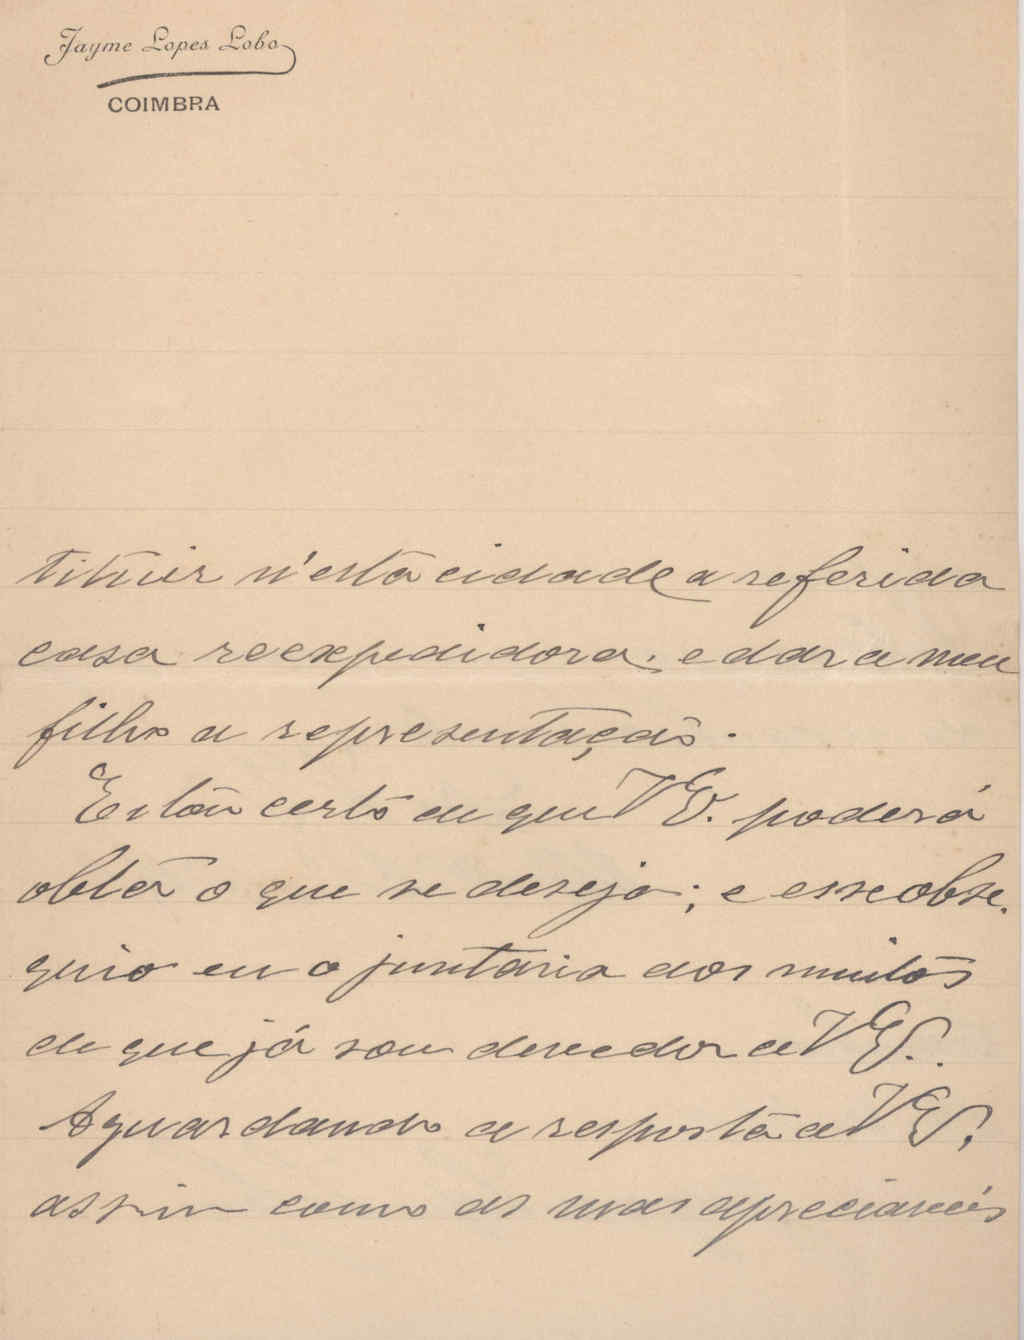 Jayme Lopes Lobo
COIMBRA
tituir n'esta cidade a referida
casa reexpedidora, e dar a meu
filho a representação.
Estou certo de que V Eª. poderá
obter o que se deseja; e esse obse-
quio eu o juntaria aos muitos
de que já sou devedor a V Eª.
Aguardando a resposta de V Eª,
assim como as suas apreciaveis